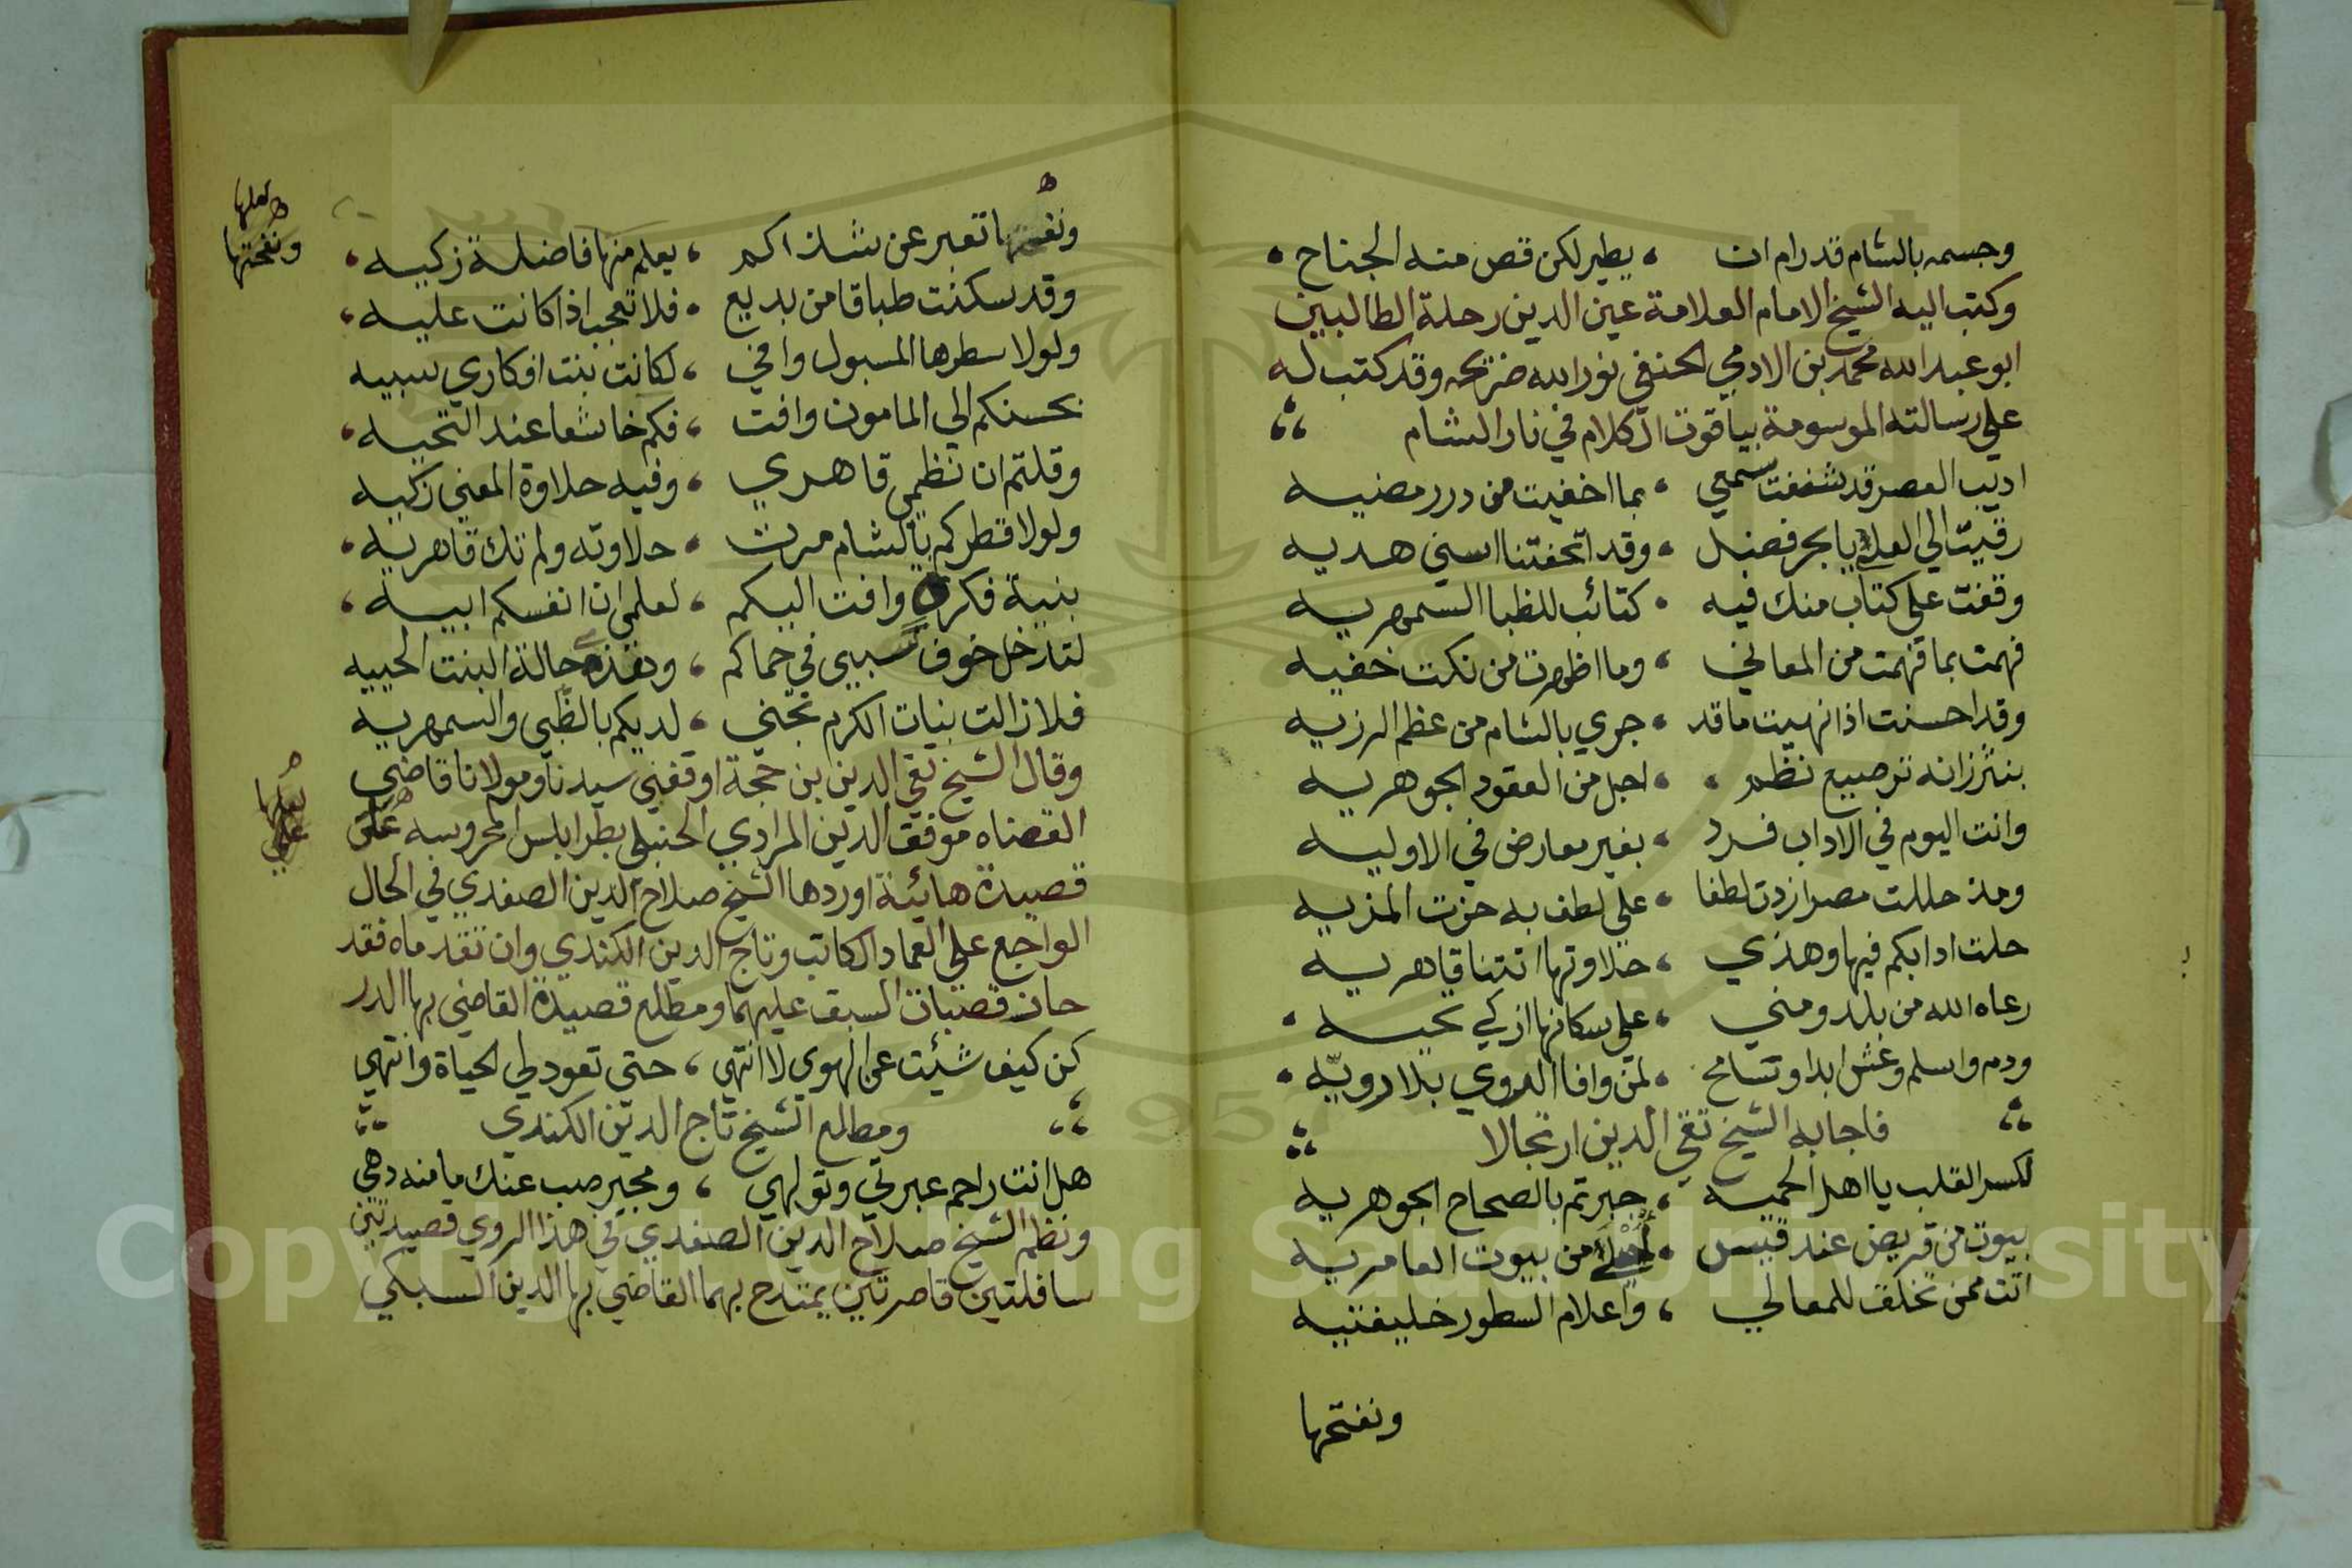 وجسمه بالشام قد رام ان ، يطير لكن قص منه الجناح ،
وكتب اليه الشيخ الامام العلامة عين الدين رحلة الطالبين
ابو عبد الله محمد بن الادمي الحنفي نور الله ضريحه وقد كتب له
علي رسالته الموسومة بياقوت الكلام في نار الشام
اديب العصر قد شففت سمعي ، بما اخفيت من درر مضيه
رقيت الي العلا يا بحر فضل ، وقد اتحفتنا اسني هديه
وقفت علي كتاب منك فيه ، كتائب للظبا السمهريه
فهمت بما فهمت من المعاني ، وما اظهرت من نكت خفيه
وقد احسنت اذ انهيت ما قد ، جري بالشام من عظم الرزيه
بنثر زانه ترصيع نظم ، اجل من العقود الجوهريه
وانت اليوم في الاداب فرد ، بغير معارض في الاوليه
ومذ حللت مصر ازددت لطفا ، علي لطف به حزت المزيه
حلت ادابكم فيها وهذي ، حلاوتها اتتنا قاهريه
رعاه الله من بلد ومني ، علي سكانها ازكي تحيه ،
ودم واسلم وعش ابدا وتسامح ، لمن وافا الروي بلا رويه ،
فاجابه الشيخ تقي الدين ارتجالا
لكسر القلب يا اهل الحميه ، جبرتم بالصحاح الجوهريه
بيوت من قريض عند قيس ، من بيوت العامريه
اتت ممن تخلف للمعالي ، واعلام السطور خليفتيه
ونفتحها
ونفحتها تعبر عن شذاكم ، يعلم منها فاضلة زكيه ،
لعلها
ونفحتها
وقد سكنت طباقا من بديع ، فلا تعجب اذا كانت عليه ،
ولولا سطرها المسبول وافي ، لكانت بنت افكاري سبيه
بحسنكم الي المامون وافت ، فكم خاشعا عند التحيه ،
وقلتم ان نظمي قاهري ، وفيه حلاوة المعني زكيه
ولولا قطركم بالشام مرت ، حلاوته ولم تك قاهريه ،
بنية فكرة وافت اليكم ، لعلمي ان انفسكم ابيه ،
لتدخل خوف سبيي في حماكم ، وهذي حالة البنت الحييه
فلا زالت بنيات الكرم تجني ، لديكم بالظبي والسمهريه
وقال الشيخ تقي الدين بن حجة اوقفني سيدنا ومولانا قاضي
القضاه موفق الدين المرادي الحنبلي بطرابلس المحروسه علي
لعلها
علي
قصيدة هائية اوردها الشيخ صلاح الدين الصفدي في الحال
الواجع علي العماد الكاتب وتاج الدين الكندي وان تقدماه فقد
حان قصبات السبق عليهما ومطلع قصيدة القاضي بها الدر
كن كيف شئت عن الهوي لا انتهي ، حتي تعود لي الحياة وانتهي
ومطلع الشيخ تاج الدين الكندي
هل انت راحم عبرتي وتولهي ، ومجير صب عنك ما منه دهي
ونظم الشيخ صلاح الدين الصفدي في هذا الروي قصيدتين
سافلتين قاصرتين يمتدح بهما القاضي بها الدين السبكي
Copyright © King Saud University
1957